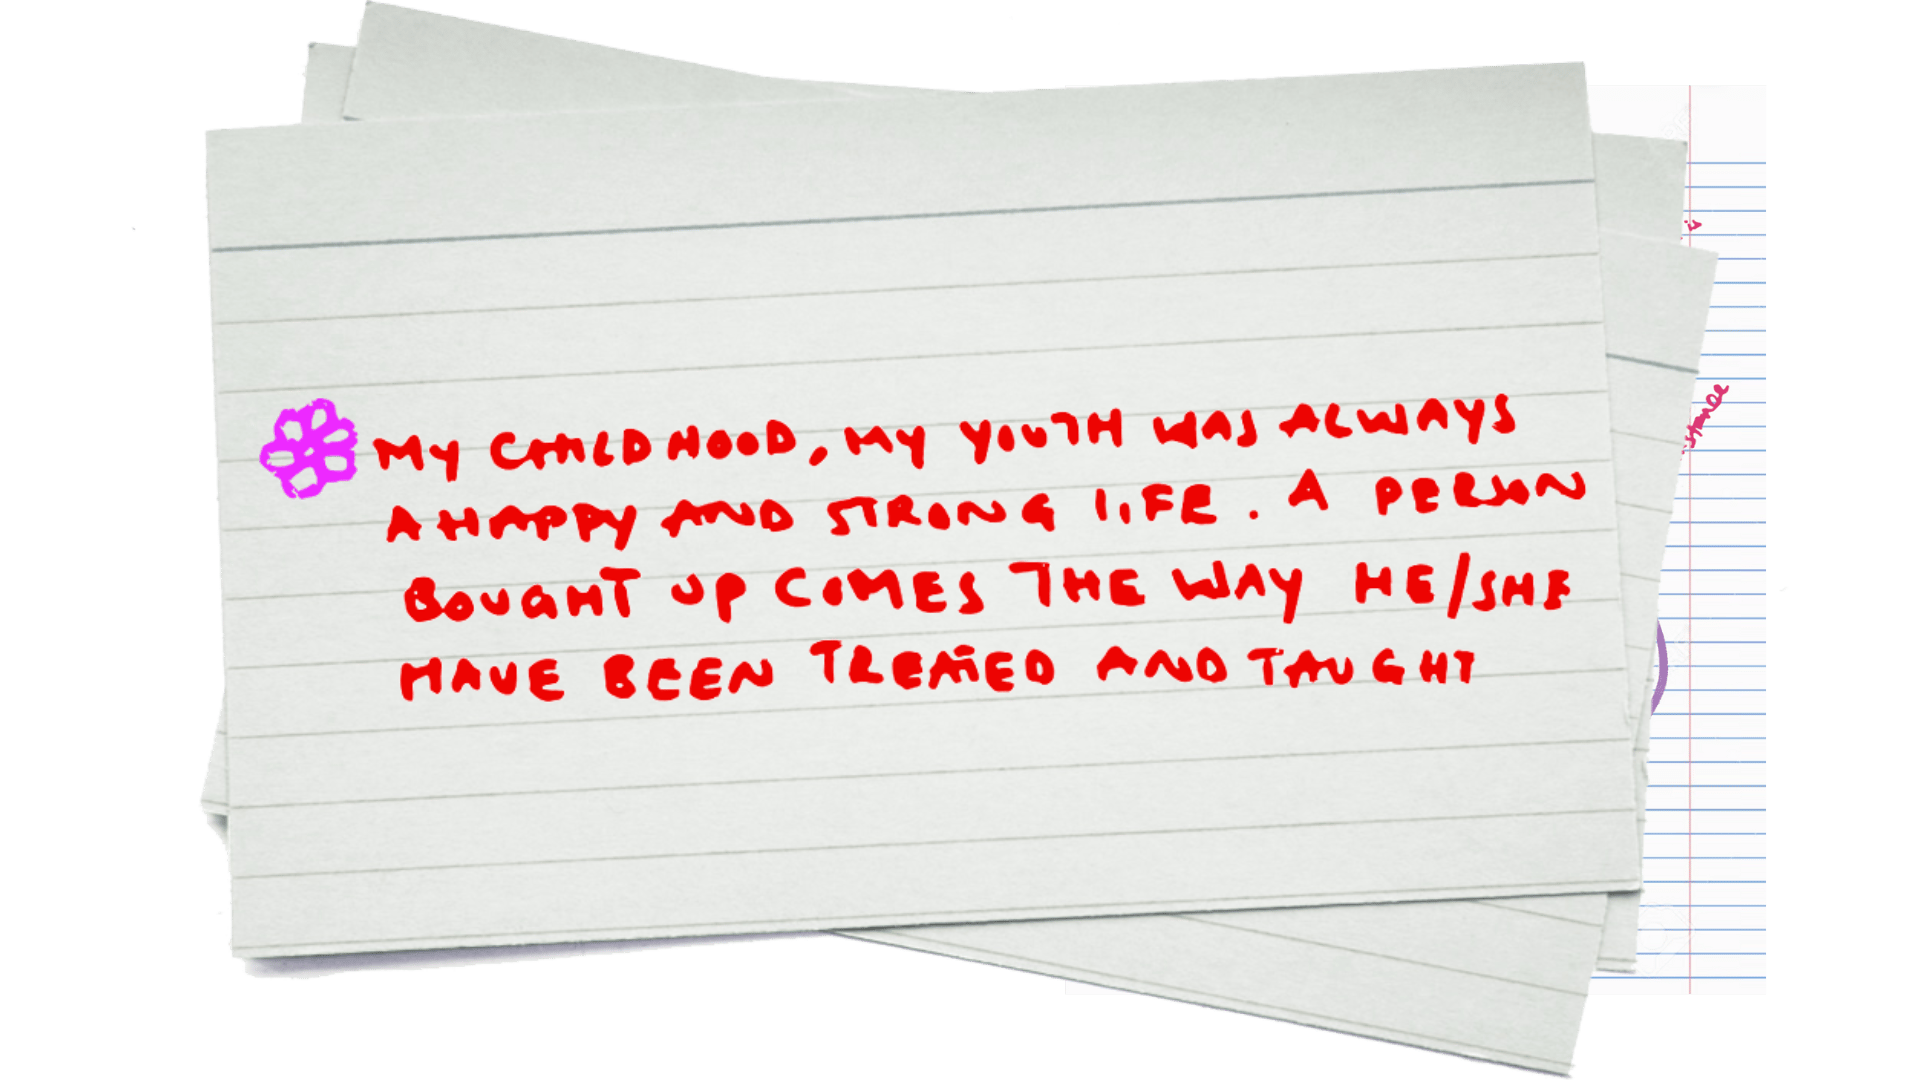 MY CHILDHOOD, MY YOUTH WAS ALWAYS
A HAPPY AND STRONG LIFE. A PERSON
BOUGHT UP COMES THE WAY HE/SHE
HAVE BEEN TREATED AND TAUGHT
is